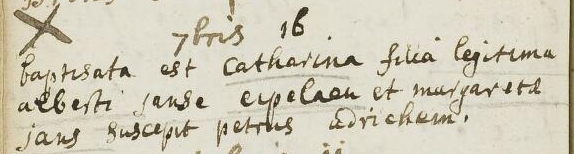 7bris 16
baptisata est Catharina filia legitima
alberti janse eipelaen et margaretae
jans suscepit petrus adrichem.